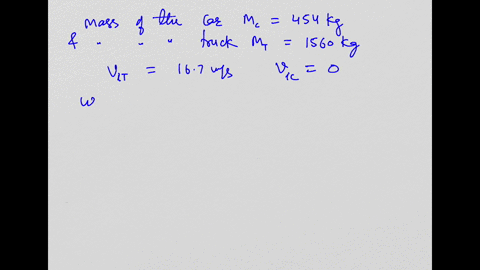 Mass of the Car M_C = 454 kg
& " " " truck M_T = 1560 kg
V_iT = 16.7 m/s V_iC = 0
w